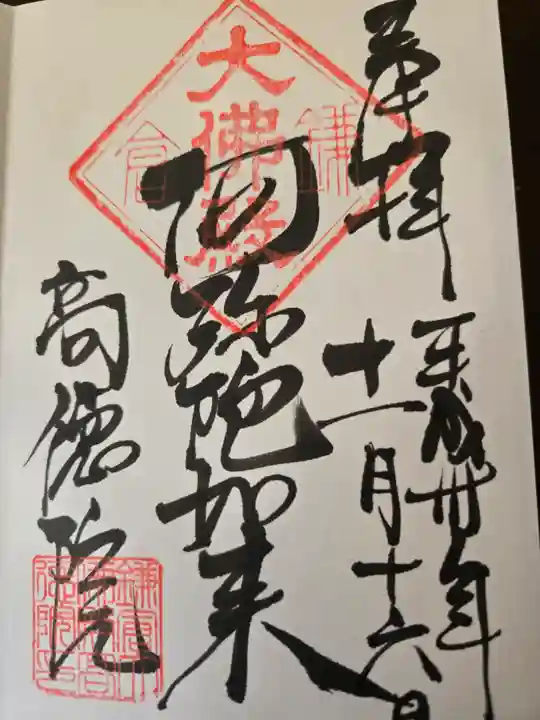 奉拝
平成卅年
十一月十六日
大佛殿
鎌倉
阿弥陀如来
高徳院